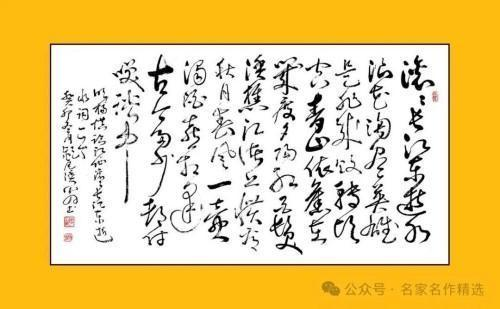 滚々长江东逝水
浪花淘尽英雄
是非成败转头
空青山依旧在
几度夕阳红白发
渔樵江渚上惯看
秋月春风一壶
浊酒喜相逢
古今多少事都付
笑谈中
明杨慎词临江仙滚々长江东逝
水词一首
癸卯冬月 书
公众号·名家名作精选